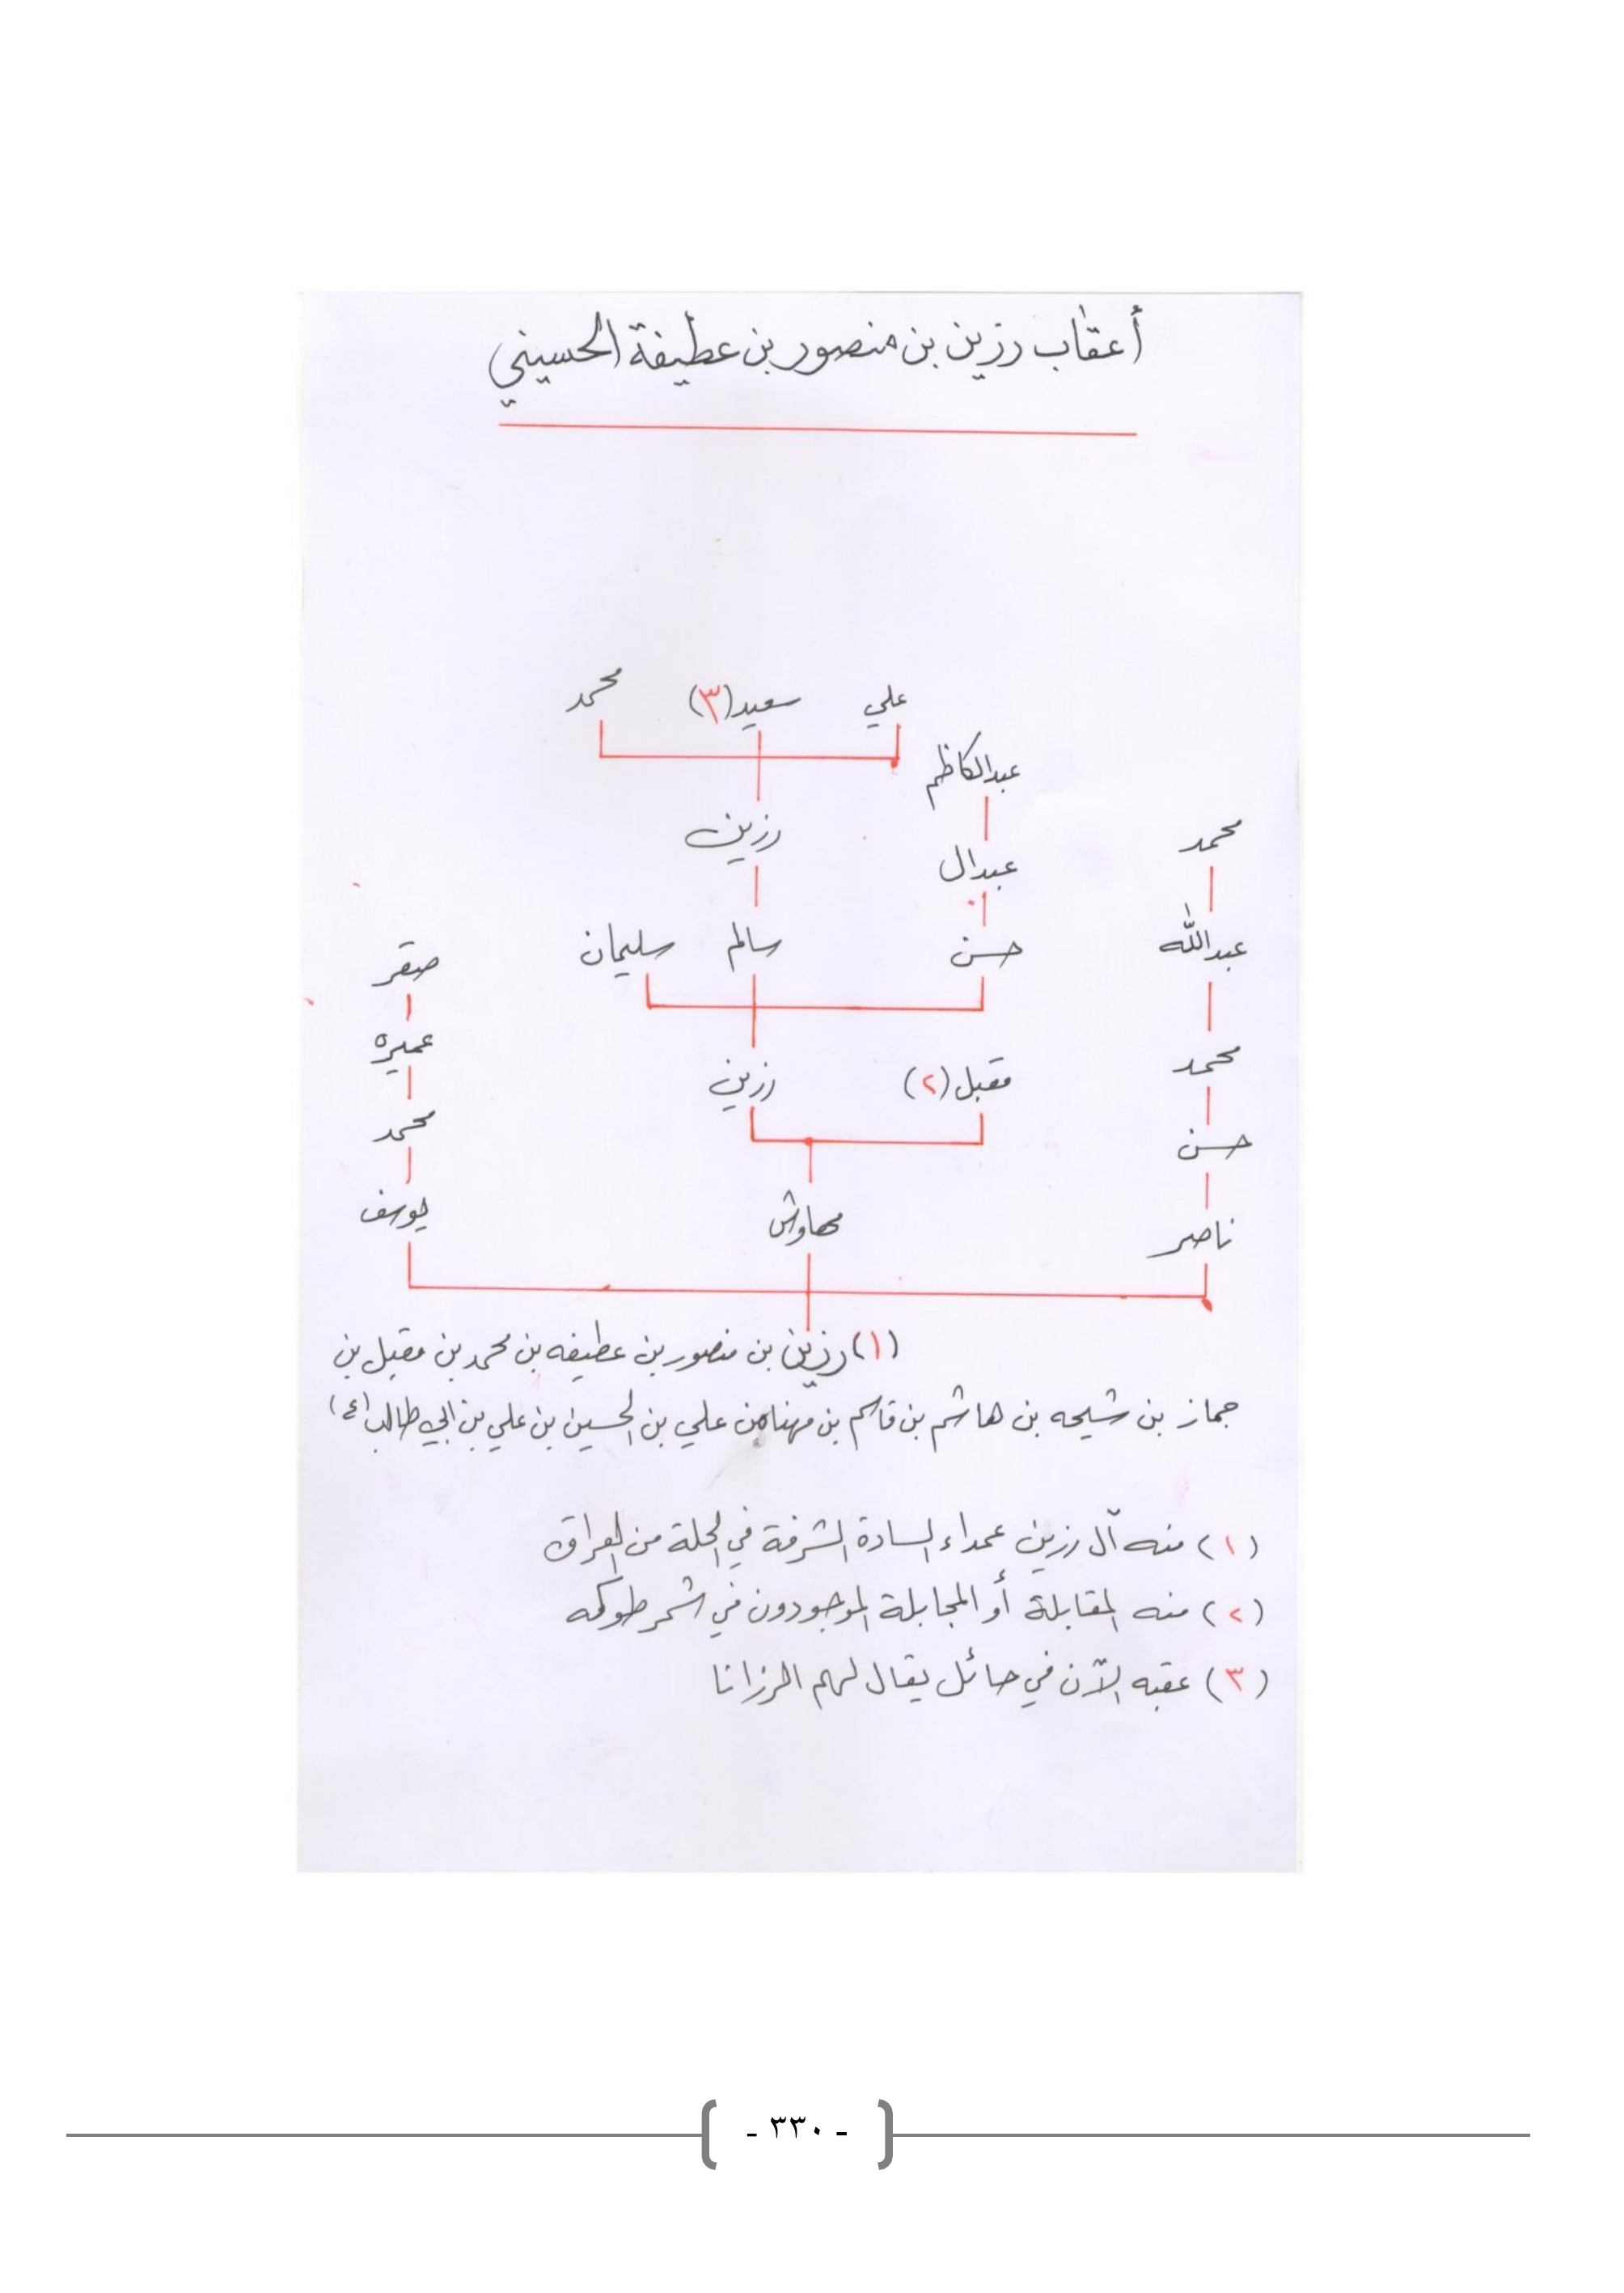 أعقاب رزين بن منصور بن عطيفة الحسيني
محمد سعيد (٣) علي
عبدالكاظم
رزين
محمد
عبدال
صقر سليمان سالم حسن عبدالله
عميره
رزين مقبل (٢) محمد
محمد حسن
يوسف مهاوش ناصر
(١) رزين بن منصور بن عطيفه بن محمد بن مقبل بن
جماز بن شيحه بن هاشم بن قاسم بن مهنا من علي بن الحسين بن علي بن ابي طالب (ع)
(١) منه آل رزين عمداء السادة الشرفة في الحلة من العراق
(٢) منه المقابلة أو المجابلة الموجودون في شمر طوكه
(٣) عقبه الآن في حائل يقال لهم الرزانا
- ٣٣٠ -